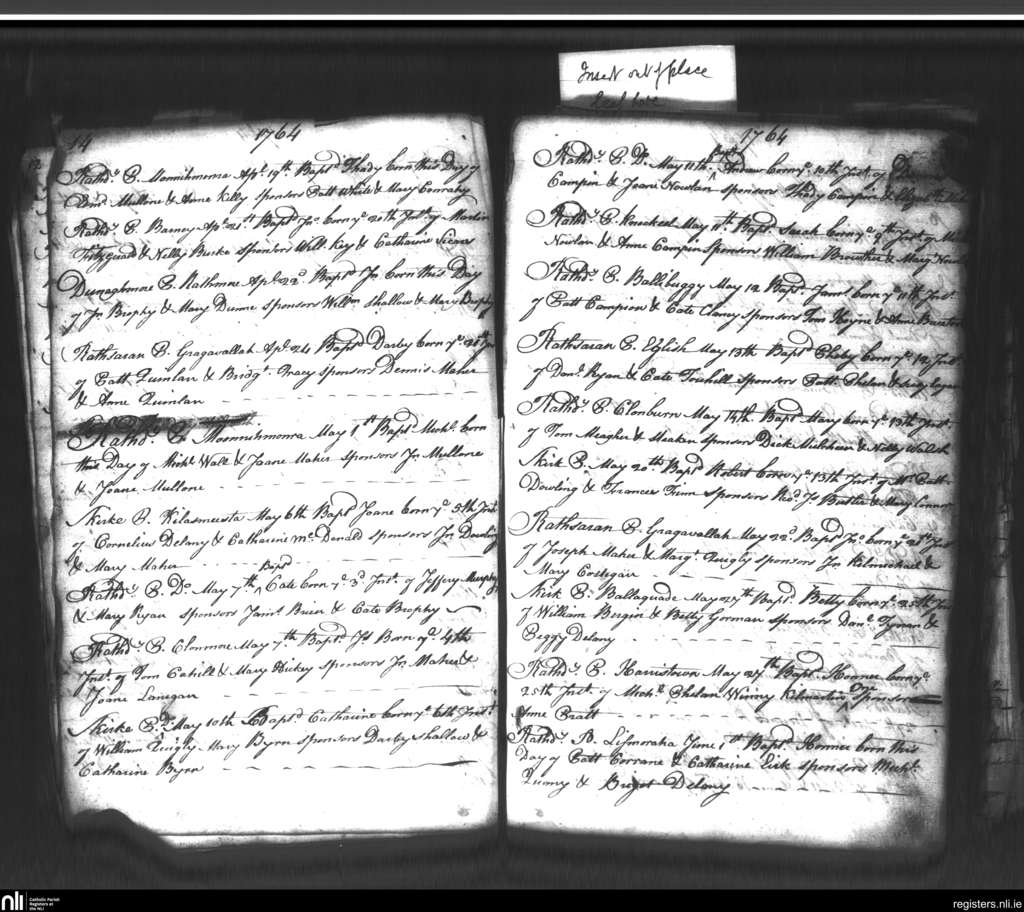 Insert out of place
14 1764
Rathdy. P. Monnihmorra Apl. 19th. Bapd. Thady born this Day of
Danl. Mullone & Anne Killy sponsors Patt White & Mary Conrahy
Rathdy. P. Barnoy Apl. 21st. Bapd. Jno. born ye. 20th Inst. of Martin
Fitzgerald & Nelly Burke sponsors Will. Key & Catharine
Dunaghmore P. Rathmore Apl. 22d. Bapd. Jn. born this Day
of Jn. Brophy & Mary Dunne sponsors Willm. Shallow & Mary Brophy
Rathsaran P. Gragavallah Apl. 24 Bapd. Darby born ye. Inst.
of Patt. Quinlan & Bridgt. Tracy sponsors Dennis Maher
& Anne Quinlan
Rathdy. P. Monnihmorra May 1st. Bapd. Michl. born
this Day of Michl. Wall & Joane Maher sponsors Jn. Mullone
& Joane Mullone
Skirke P. Kilasmeesta May 6th Bapd. Joane born ye. 5th Inst.
of Cornelius Delany & Catharine Mc. Donald sponsors Jn. Dowling
& Mary Maher
Rathdy. P. Do. May 7th Bapd. Cate born ye. 3d. Inst. of Jeffery Murphy
& Mary Ryan sponsors Jams. Bain & Cate Brophy
Rathdy. P. Clonmore May 7th. Bapd. Js. Born ye. 4th
Inst. of Tom Cahill & Mary Hickey sponsors Jn. Maher &
Joane Lanegan
Skirke P. Do. May 10th Bapd. Catharine born ye. 6th Inst.
of William Quigly Mary Byrn sponsors Darby Shallow &
Catharine Byrn
1764
Rathdy. P. Do. May 11th Bapd. Andrew born ye. 10th Inst. of
Campin & Joane Nowlan sponsors Thady Campin &
Rathdy. P. Knockeel May 11th. Bapd. Sarah born ye. 9th Inst. of
Nowlan & Anne Campin sponsors William Brownrie & Mary
Rathdy. P. Ballibuggy May 12 Bapd. Jams. born ye. 11th Inst.
of Patt Campion & Cate Clancy sponsors Tom Hoyne & Anne
Rathsaran P. Eglish May 13th Bapd. Pheby born ye. 12 Inst.
of Danl. Ryan & Cate Trehell sponsors Patt. Phelan &
Rathdy. P. Clonburn May 14th. Bapd. Mary born ye. 13th Inst.
of Tom Meagher & Meaken sponsors Dick Mulhean & Nelly Walsh
Skirk P. May 20th Bapd. Robert born ye. 15th Inst. of Mr. Patt
Dowling & Frances Trim sponsors Revd. Js. Butler & Mary Connor
Rathsaran P. Gragavallah May 22d. Bapd. Jno. born ye. 21st. Inst.
of Joseph Maher & Margt. Quigly sponsors Jn. Kilmichael &
Mary Costegan
Skirk P. Ballaguade May 27th Bapd. Betty born ye. 25th Inst.
of William Bergin & Betty Gorman sponsors Danl. Tynan &
Peggy Delany
Rathdy. P. Harristown May 27th Bapd. Honner born ye.
25th Inst. of Michl. Phelan & Winny Kilmartin sponsors
Anne Pratt
Rathdy. P. Lismoraha June 1st Bapd. Honner born this
Day of Patt Corrane & Catharine Kirk sponsors Michl.
& Briget Delany
nli
Catholic Parish
Registers at
the NLI
registers.nli.ie